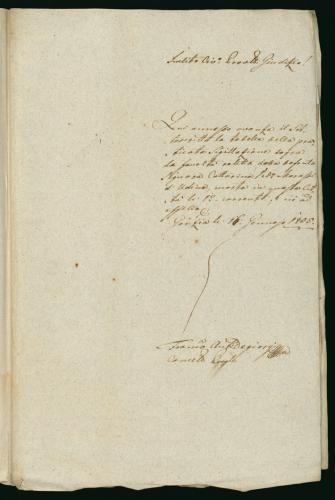 Inclito Ces.º Reg.º Giudizio!
Qui annesso umilia il Sot
toscritto la tabella della pra
ticata Sigillazione sopra
la facoltà relitta dalla defunta
Signora Cattarina
d'Udine, morta in questa Cit
tà li 12 corrente, e ciò ad
Gorizia li 16. Gennajo 1805.
Franc.º Ant.º Degiorgi
Cancell.